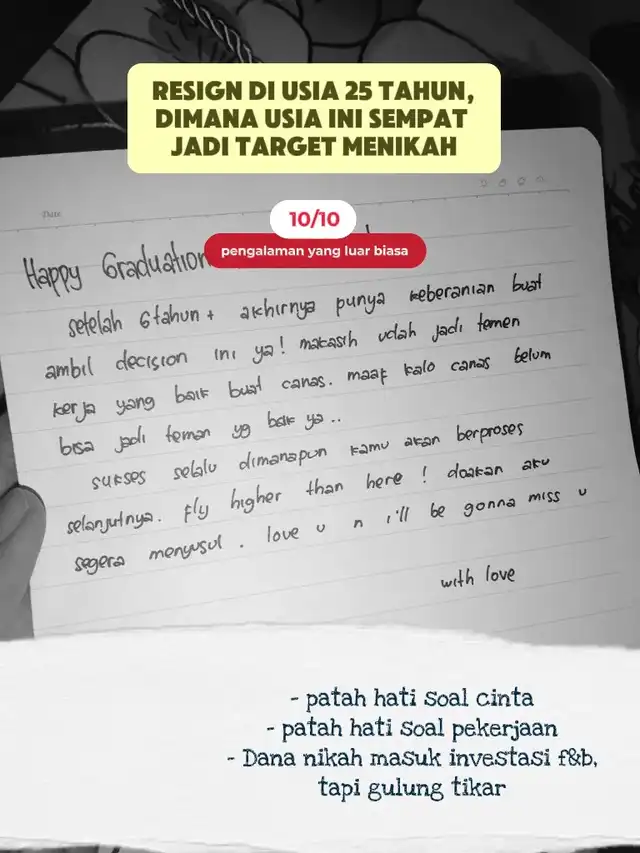 RESIGN DI USIA 25 TAHUN,
DIMANA USIA INI SEMPAT
JADI TARGET MENIKAH
Date
10/10
pengalaman yang luar biasa
Happy Graduation
setelah 6tahun + akhirnya punya keberanian buat
ambil decision ini ya! makasih udah jadi temen
kerja yang baik buat canas. maaf kalo canas belum
bisa jadi teman yg baik ya..
sukses selalu dimanapun kamu akan berproses
selanjutnya. fly higher than here! doakan aku
segera menyusul. love u n i'll be gonna miss u
with love
- patah hati soal cinta
- patah hati soal pekerjaan
- Dana nikah masuk investasi f&b,
tapi gulung tikar